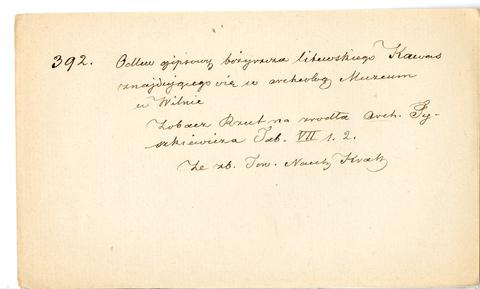 392. Odlew gipsowy bożyszcza litewskiego Kawas
znajdującego się w archeolog Muzeum
w Wilnie
Zobacz Rzut na zrodła arch. Ty-
szkiewicza Tab. VII 1. 2.
Ze zb. Tow. Nauk. Krak